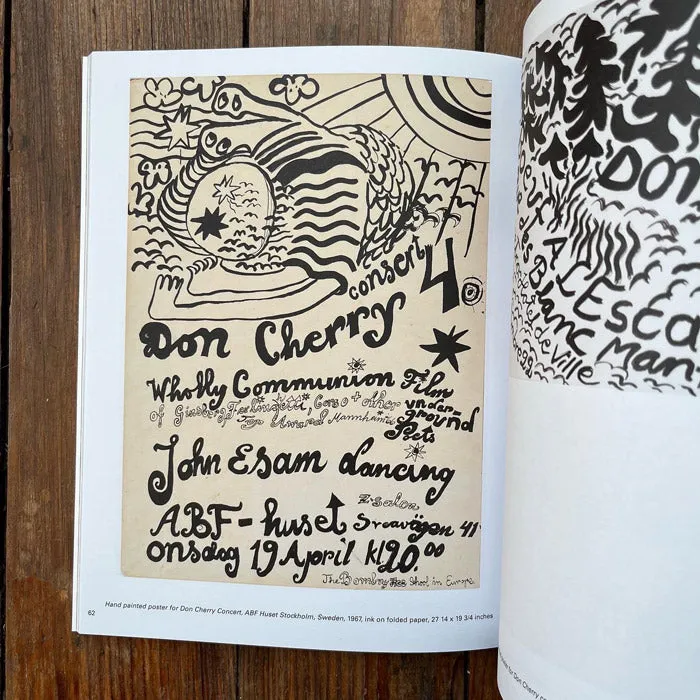 consert 40
Don Cherry
Wholly Communion Film
of Ginsberg, Ferlinghetti, Corso + other under-
Award Mannheim ground
Poets
John Esam dancing
Z-salen
ABF-huset Sveavägen 41
onsdag 19 April kl 20.00
The Bombay Free School in Europe
62
Hand painted poster for Don Cherry Concert, ABF Huset Stockholm, Sweden, 1967, ink on folded paper, 27 14 x 19 3/4 inches
DON
Blanc Man
de Ville
for Don Cherry co